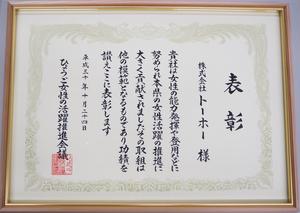 表彰
株式会社トーホー 様
貴社は女性の能力発揮や登用などに
努められ本県の女性活躍の推進に
大きく貢献されましたその取組は
他の模範となるものであり功績を
讃えここに表彰します
平成三十年十月二十四日
ひょうご女性の活躍推進会議